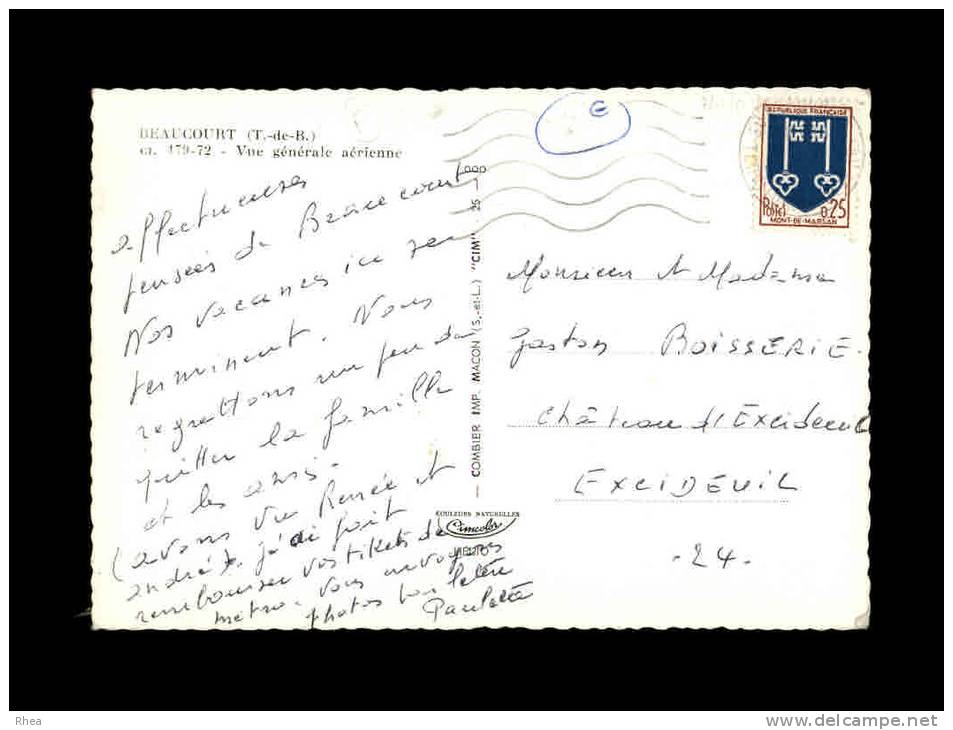 BEAUCOURT (T.-de-B.)
179-72 - Vue générale aérienne
affectueuses
pensées de Beaucourt
Nos vacances ici se
terminent. Nous
regrettons un peu de
quitter la famille
et les amis.
(avons vu Renée et
andré). j'ai fait
rembourser vos tikets de
métro. Vous envoyons
photos
Paulette
COMBIER IMP. MACON (S.-et-L.) "CIM"
COULEURS NATURELLES
Cimcolor
E
REPUBLIQUE FRANÇAISE
Postes 0,25
MONT-DE-MARSAN
Monsieur et Madame
Gaston BOISSERIE.
Château d'Excideuil
EXCIDEUIL
- 24 -
Rhea
www.delcampe.net